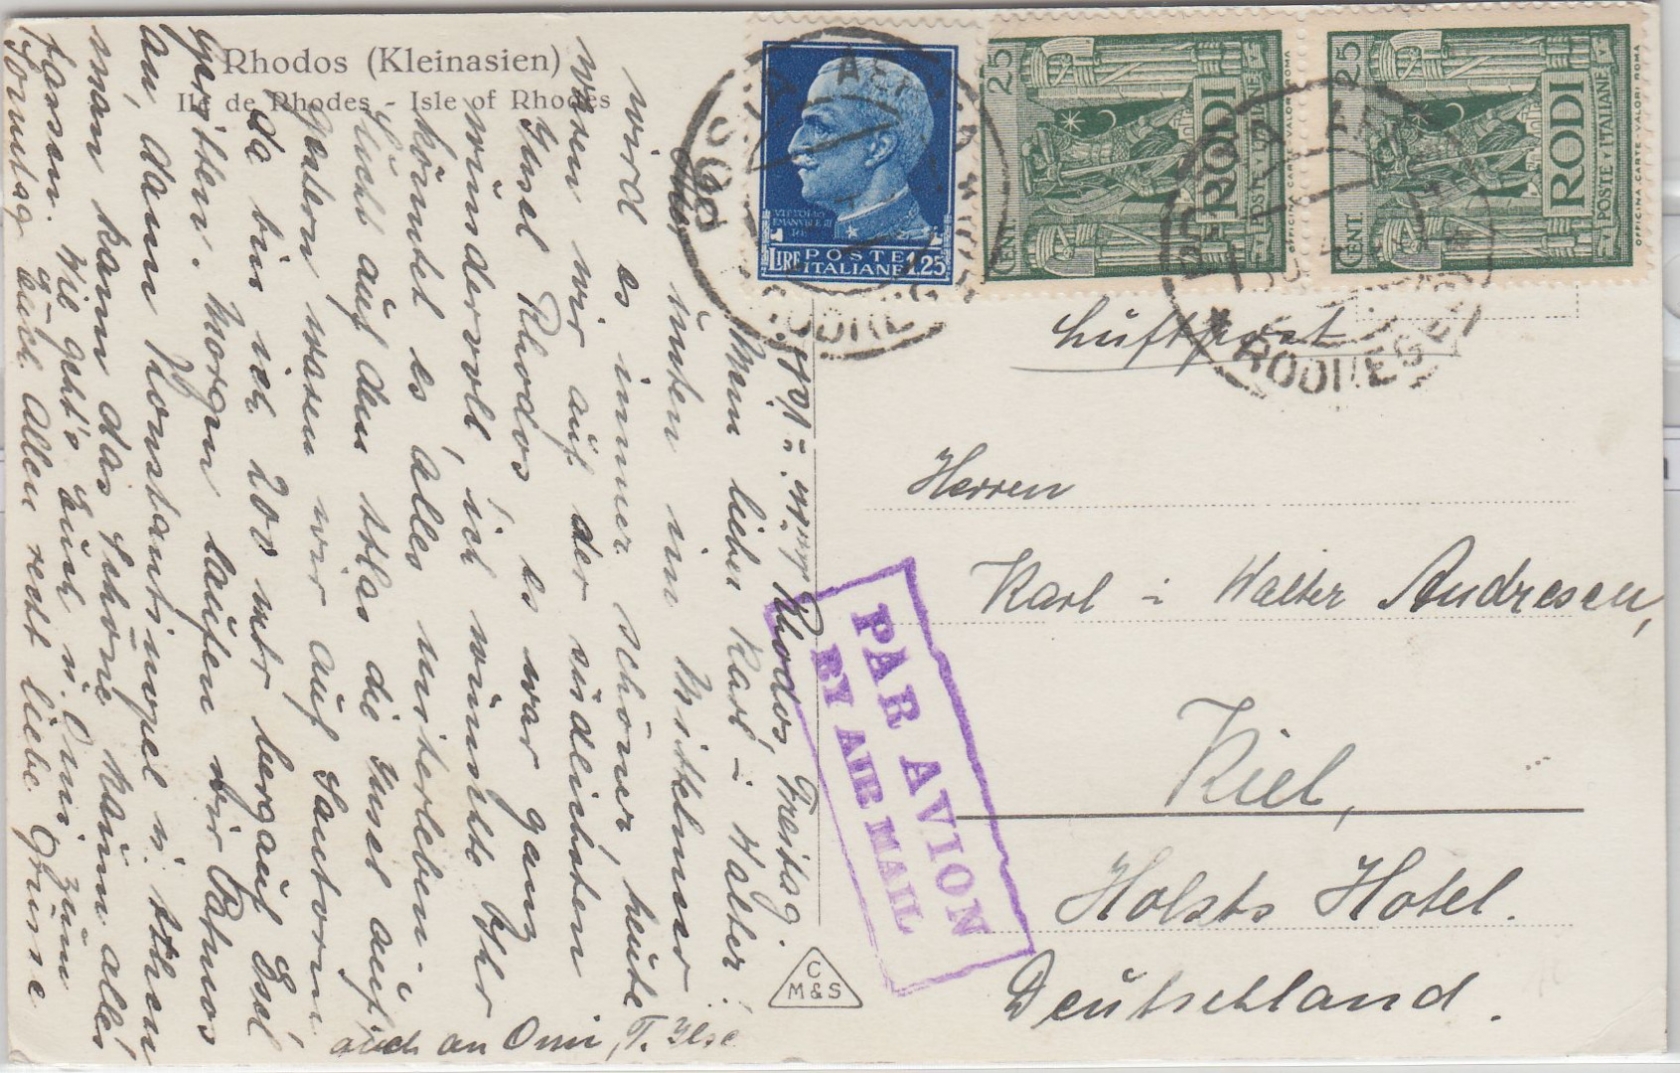 Rhodos (Kleinasien)
Ile de Rhodes - Isle of Rhodes
Rhodos, Freitag.
Mein lieber Karl – Walter!
unten im Mittelmeer
wird es immer schöner, heute
waren wir auf der südlichsten
Insel Rhodos, es war ganz
wundervoll, ich wünschte Ihr
könntet es alles miterleben.
auf den Atlas die Insel auf,
gestern waren wir auf Santorin
da bin ich 200 mtr bergauf Esel
geritten. Morgen laufen wir Patmos
an, dann Konstantinopel u. Athen
man kann das Schöne kaum alles
fassen. Wie geht's Euch u. Omi zum
Sonntag Euch Allen recht liebe Grüsse
auch an Omi, T. Ilse
Vati
VITTORIO
EMANUELE III
POSTE
LIRE ITALIANE 1.25
25
CENT.
RODI
POSTE ITALIANE
OFFICINA CARTE VALORI ROMA
25
CENT.
RODI
POSTE ITALIANE
OFFICINA CARTE VALORI ROMA
RODI EGEO
Luftpost
Herren
Karl – Walter Andresen,
Kiel,
Holsts Hotel.
Deutschland.
PAR AVION
BY AIR MAIL
C
M&S